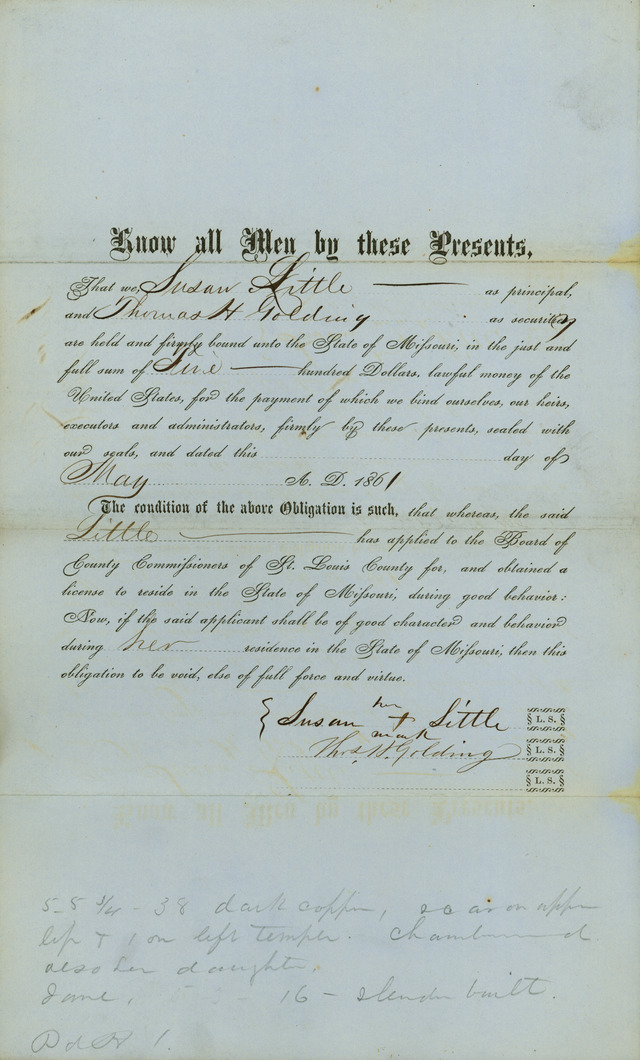 Know all Men by these Presents,
That we, Susan Little as principal,
and Thomas H Golding as security
are held and firmly bound unto the State of Missouri, in the just and
full sum of Five hundred Dollars, lawful money of the
United States, for the payment of which we bind ourselves, our heirs,
executors and administrators, firmly by these presents, sealed with
our seals, and dated this day of
May A. D. 1861
The condition of the above Obligation is such, that whereas, the said
Little has applied to the Board of
County Commissioners of St. Louis County for, and obtained a
license to reside in the State of Missouri, during good behavior:
Now, if the said applicant shall be of good character and behavior
during her residence in the State of Missouri, then this
obligation to be void, else of full force and virtue.
her
Susan + Little L. S.
mark
Thos. H. Golding L. S.
L. S.
5-8 3/4 - 38 dark copper, scar on upper
lip + 1 on left temple. chambermaid
also her daughter
Jane, 16 - slender built.